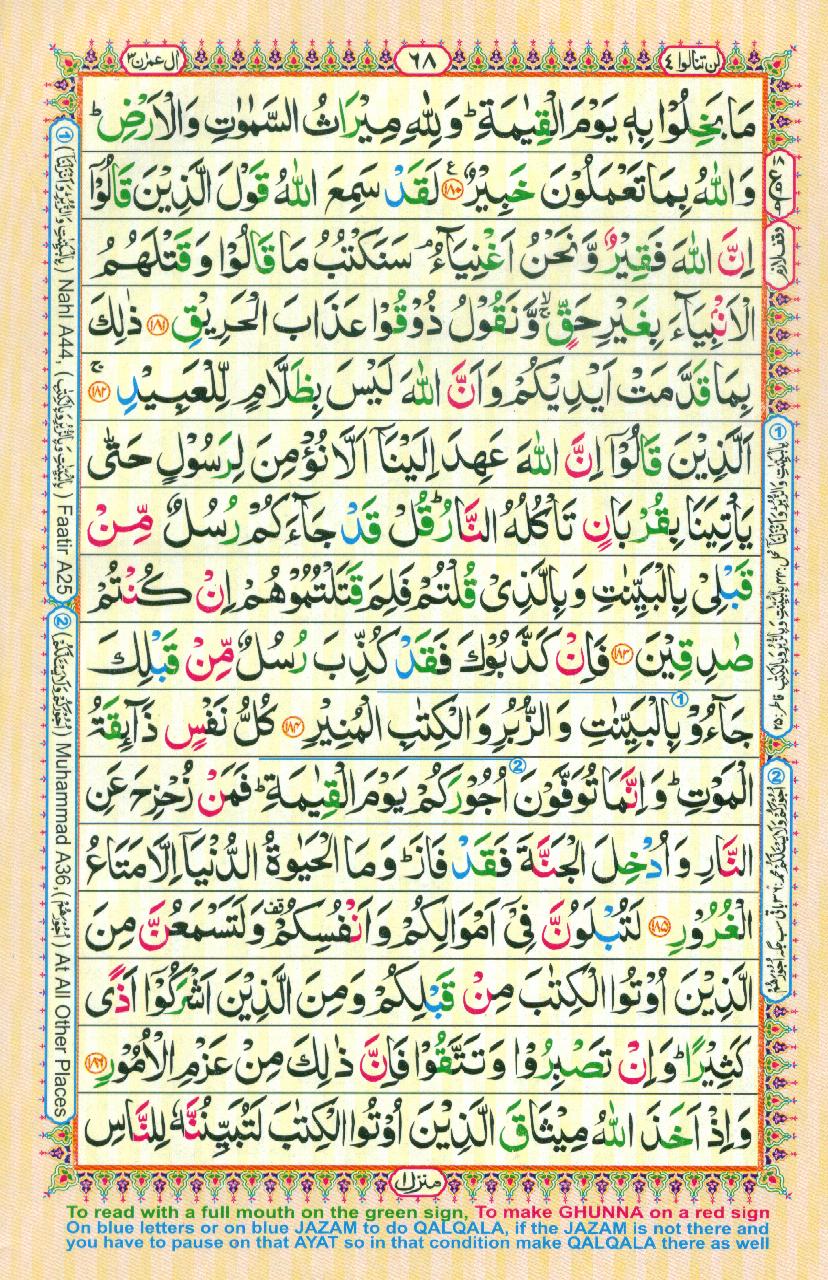 لن تنالوا ٤
٦٨
ال عمرٰن ٣
مَا بَخِلُوْا بِهٖ يَوْمَ الْقِيٰمَةِ ؕ وَ لِلّٰهِ مِيْرَاثُ السَّمٰوٰتِ وَالْاَرْضِ ؕ
وَاللّٰهُ بِمَا تَعْمَلُوْنَ خَبِيْرٌ ﴿۱۸۰﴾ لَقَدْ سَمِعَ اللّٰهُ قَوْلَ الَّذِيْنَ قَالُوْۤا
اِنَّ اللّٰهَ فَقِيْرٌ وَّ نَحْنُ اَغْنِيَآءُ ۘ سَنَكْتُبُ مَا قَالُوْا وَ قَتْلَهُمُ
الْاَنْۢبِيَآءَ بِغَيْرِ حَقٍّ ۙۚ وَّ نَقُوْلُ ذُوْقُوْا عَذَابَ الْحَرِيْقِ ﴿۱۸۱﴾ ذٰلِكَ
بِمَا قَدَّمَتْ اَيْدِيْكُمْ وَ اَنَّ اللّٰهَ لَيْسَ بِظَلَّامٍ لِّلْعَبِيْدِ ﴿۱۸۲﴾ ۚ
اَلَّذِيْنَ قَالُوْۤا اِنَّ اللّٰهَ عَهِدَ اِلَيْنَاۤ اَلَّا نُؤْمِنَ لِرَسُوْلٍ حَتّٰى
يَاْتِيَنَا بِقُرْبَانٍ تَاْكُلُهُ النَّارُ ؕ قُلْ قَدْ جَآءَكُمْ رُسُلٌ مِّنْ
قَبْلِىْ بِالْبَيِّنٰتِ وَ بِالَّذِىْ قُلْتُمْ فَلِمَ قَتَلْتُمُوْهُمْ اِنْ كُنْتُمْ
صٰدِقِيْنَ ﴿۱۸۳﴾ فَاِنْ كَذَّبُوْكَ فَقَدْ كُذِّبَ رُسُلٌ مِّنْ قَبْلِكَ
جَآءُوْ بِالْبَيِّنٰتِ وَ الزُّبُرِ وَ الْكِتٰبِ الْمُنِيْرِ ﴿۱۸۴﴾ كُلُّ نَفْسٍ ذَآئِقَةُ
الْمَوْتِ ؕ وَ اِنَّمَا تُوَفَّوْنَ اُجُوْرَكُمْ يَوْمَ الْقِيٰمَةِ ؕ فَمَنْ زُحْزِحَ عَنِ
النَّارِ وَ اُدْخِلَ الْجَنَّةَ فَقَدْ فَازَ ؕ وَ مَا الْحَيٰوةُ الدُّنْيَاۤ اِلَّا مَتَاعُ
الْغُرُوْرِ ﴿۱۸۵﴾ لَتُبْلَوُنَّ فِىْۤ اَمْوَالِكُمْ وَ اَنْفُسِكُمْ وَ لَتَسْمَعُنَّ مِنَ
الَّذِيْنَ اُوْتُوا الْكِتٰبَ مِنْ قَبْلِكُمْ وَ مِنَ الَّذِيْنَ اَشْرَكُوْۤا اَذًى
كَثِيْرًا ؕ وَ اِنْ تَصْبِرُوْا وَ تَتَّقُوْا فَاِنَّ ذٰلِكَ مِنْ عَزْمِ الْاُمُوْرِ ﴿۱۸۶﴾
وَ اِذْ اَخَذَ اللّٰهُ مِيْثَاقَ الَّذِيْنَ اُوْتُوا الْكِتٰبَ لَتُبَيِّنُنَّهٗ لِلنَّاسِ
منزل ١
① (بالبينت والزبر وانزلنا) Nahl A44, (بالبينت وبالزبر وبالكتب) Faatir A25
② (اجوركم ولا يسئلكم) Muhammad A36, (اجورهم) At All Other Places
وقف لازم
To read with a full mouth on the green sign, To make GHUNNA on a red sign
On blue letters or on blue JAZAM to do QALQALA, if the JAZAM is not there and
you have to pause on that AYAT so in that condition make QALQALA there as well